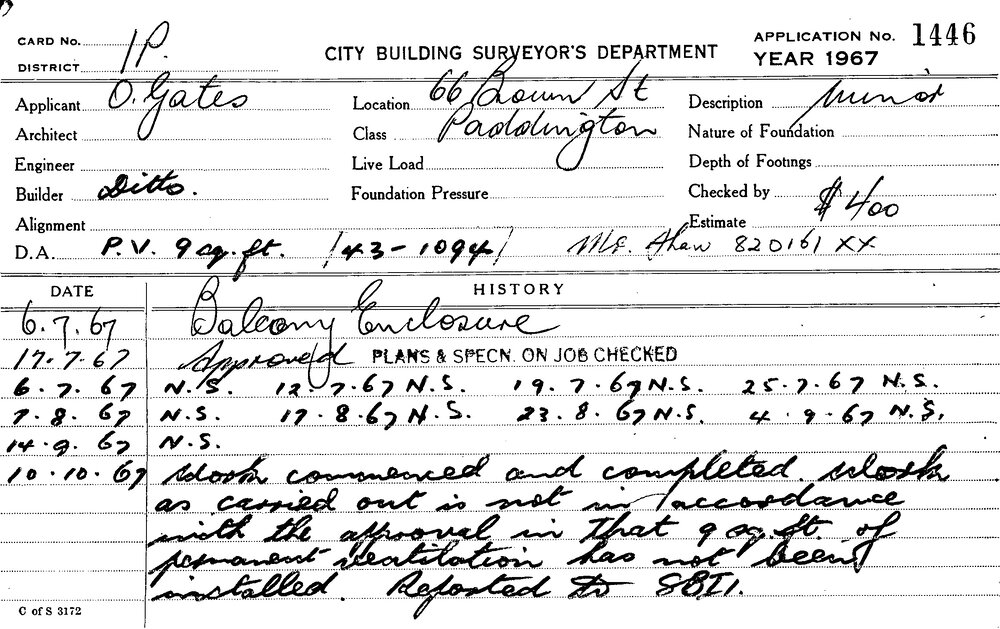 CARD No. 1P.
DISTRICT
CITY BUILDING SURVEYOR'S DEPARTMENT
APPLICATION No. 1446
YEAR 1967
Applicant O. Gates
Location 66 Brown St
Description Minor
Architect
Class Paddington
Nature of Foundation
Engineer
Live Load
Depth of Footings
Builder Ditto.
Foundation Pressure
Checked by
Alignment
Estimate $400
D.A. P.V. 9 sq. ft. /43-1094/ Mr. Shaw 820161 XX
DATE HISTORY
6.7.67 Balcony Enclosure
17.7.67 Approved PLANS & SPECN. ON JOB CHECKED
6.7.67 N.S. 12.7.67 N.S. 19.7.67 N.S. 25.7.67 N.S.
7.8.67 N.S. 17.8.67 N.S. 23.8.67 N.S. 4.9.67 N.S.
14.9.67 N.S.
10.10.67 Work commenced and completed. Work
as carried out is not in accordance
with the approval in that 9 sq. ft. of
permanent ventilation has not been
installed. Reported to SBI.
C of S 3172